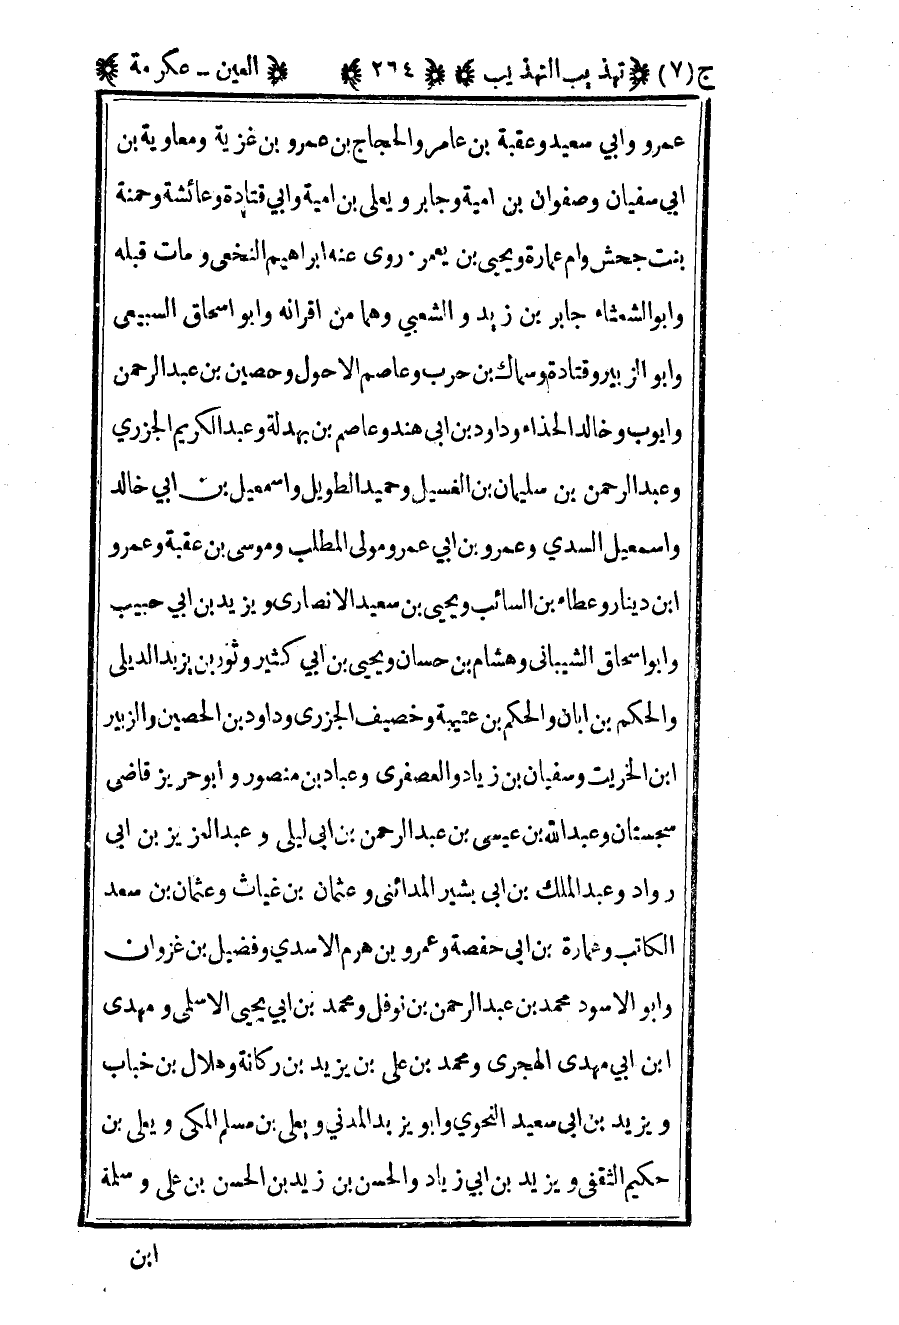 ج(٧) تهذيب التهذيب ٢٦٤ العين - عكرمة
عمرو وابي سعيد وعقبة بن عامر والحجاج بن عمرو بن غزية ومعاوية بن
ابي سفيان وصفوان بن امية وجابر ويعلى بن امية وابي قتادة وعائشة وحمنة
بنت جحش وام عمارة ويحيى بن يعمر · روى عنه ابراهيم النخعي ومات قبله
وابو الشعثاء جابر بن زيد والشعبي وهما من اقرانه وابو اسحاق السبيعي
وابو الزبير وقتادة وسماك بن حرب وعاصم الاحول وحصين بن عبدالرحمن
وايوب وخالد الحذاء وداود بن ابي هند وعاصم بن بهدلة وعبدالكريم الجزري
وعبدالرحمن بن سليمان بن الغسيل وحميد الطويل واسمعيل بن ابي خالد
واسمعيل السدي وعمرو بن ابي عمرو مولى المطلب وموسى بن عقبة وعمرو
ابن دينار وعطاء بن السائب ويحيى بن سعيد الانصارى ويزيد بن ابي حبيب
وابو اسحاق الشيبانى وهشام بن حسان ويحيى بن ابي كثير وثور بن يزيد الديلى
والحكم بن ابان والحكم بن عتيبة وخصيف الجزرى وداود بن الحصين والزبير
ابن الخريت وسفيان بن زياد والعصفرى وعباد بن منصور وابو حريز قاضى
سجستان وعبدالله بن عيسى بن عبدالرحمن بن ابى ليلى وعبدالعزيز بن ابى
رواد وعبدالملك بن ابى بشير المدائنى وعثمان بن غياث وعثمان بن سعد
الكاتب وعمارة بن ابى حفصة وعمرو بن هرم الاسدي وفضيل بن غزوان
وابو الاسود محمد بن عبدالرحمن بن نوفل ومحمد بن ابي يحيى الاسلمى ومهدى
ابن ابي مهدى الهجرى ومحمد بن على بن يزيد بن ركانة وهلال بن خباب
ويزيد بن ابى سعيد النحوي وابو يزيد المدني ويعلى بن مسلم المكى ويعلى بن
حكيم الثقفى ويزيد بن ابي زياد والحسن بن زيد بن الحسن بن على وسلمة
ابن